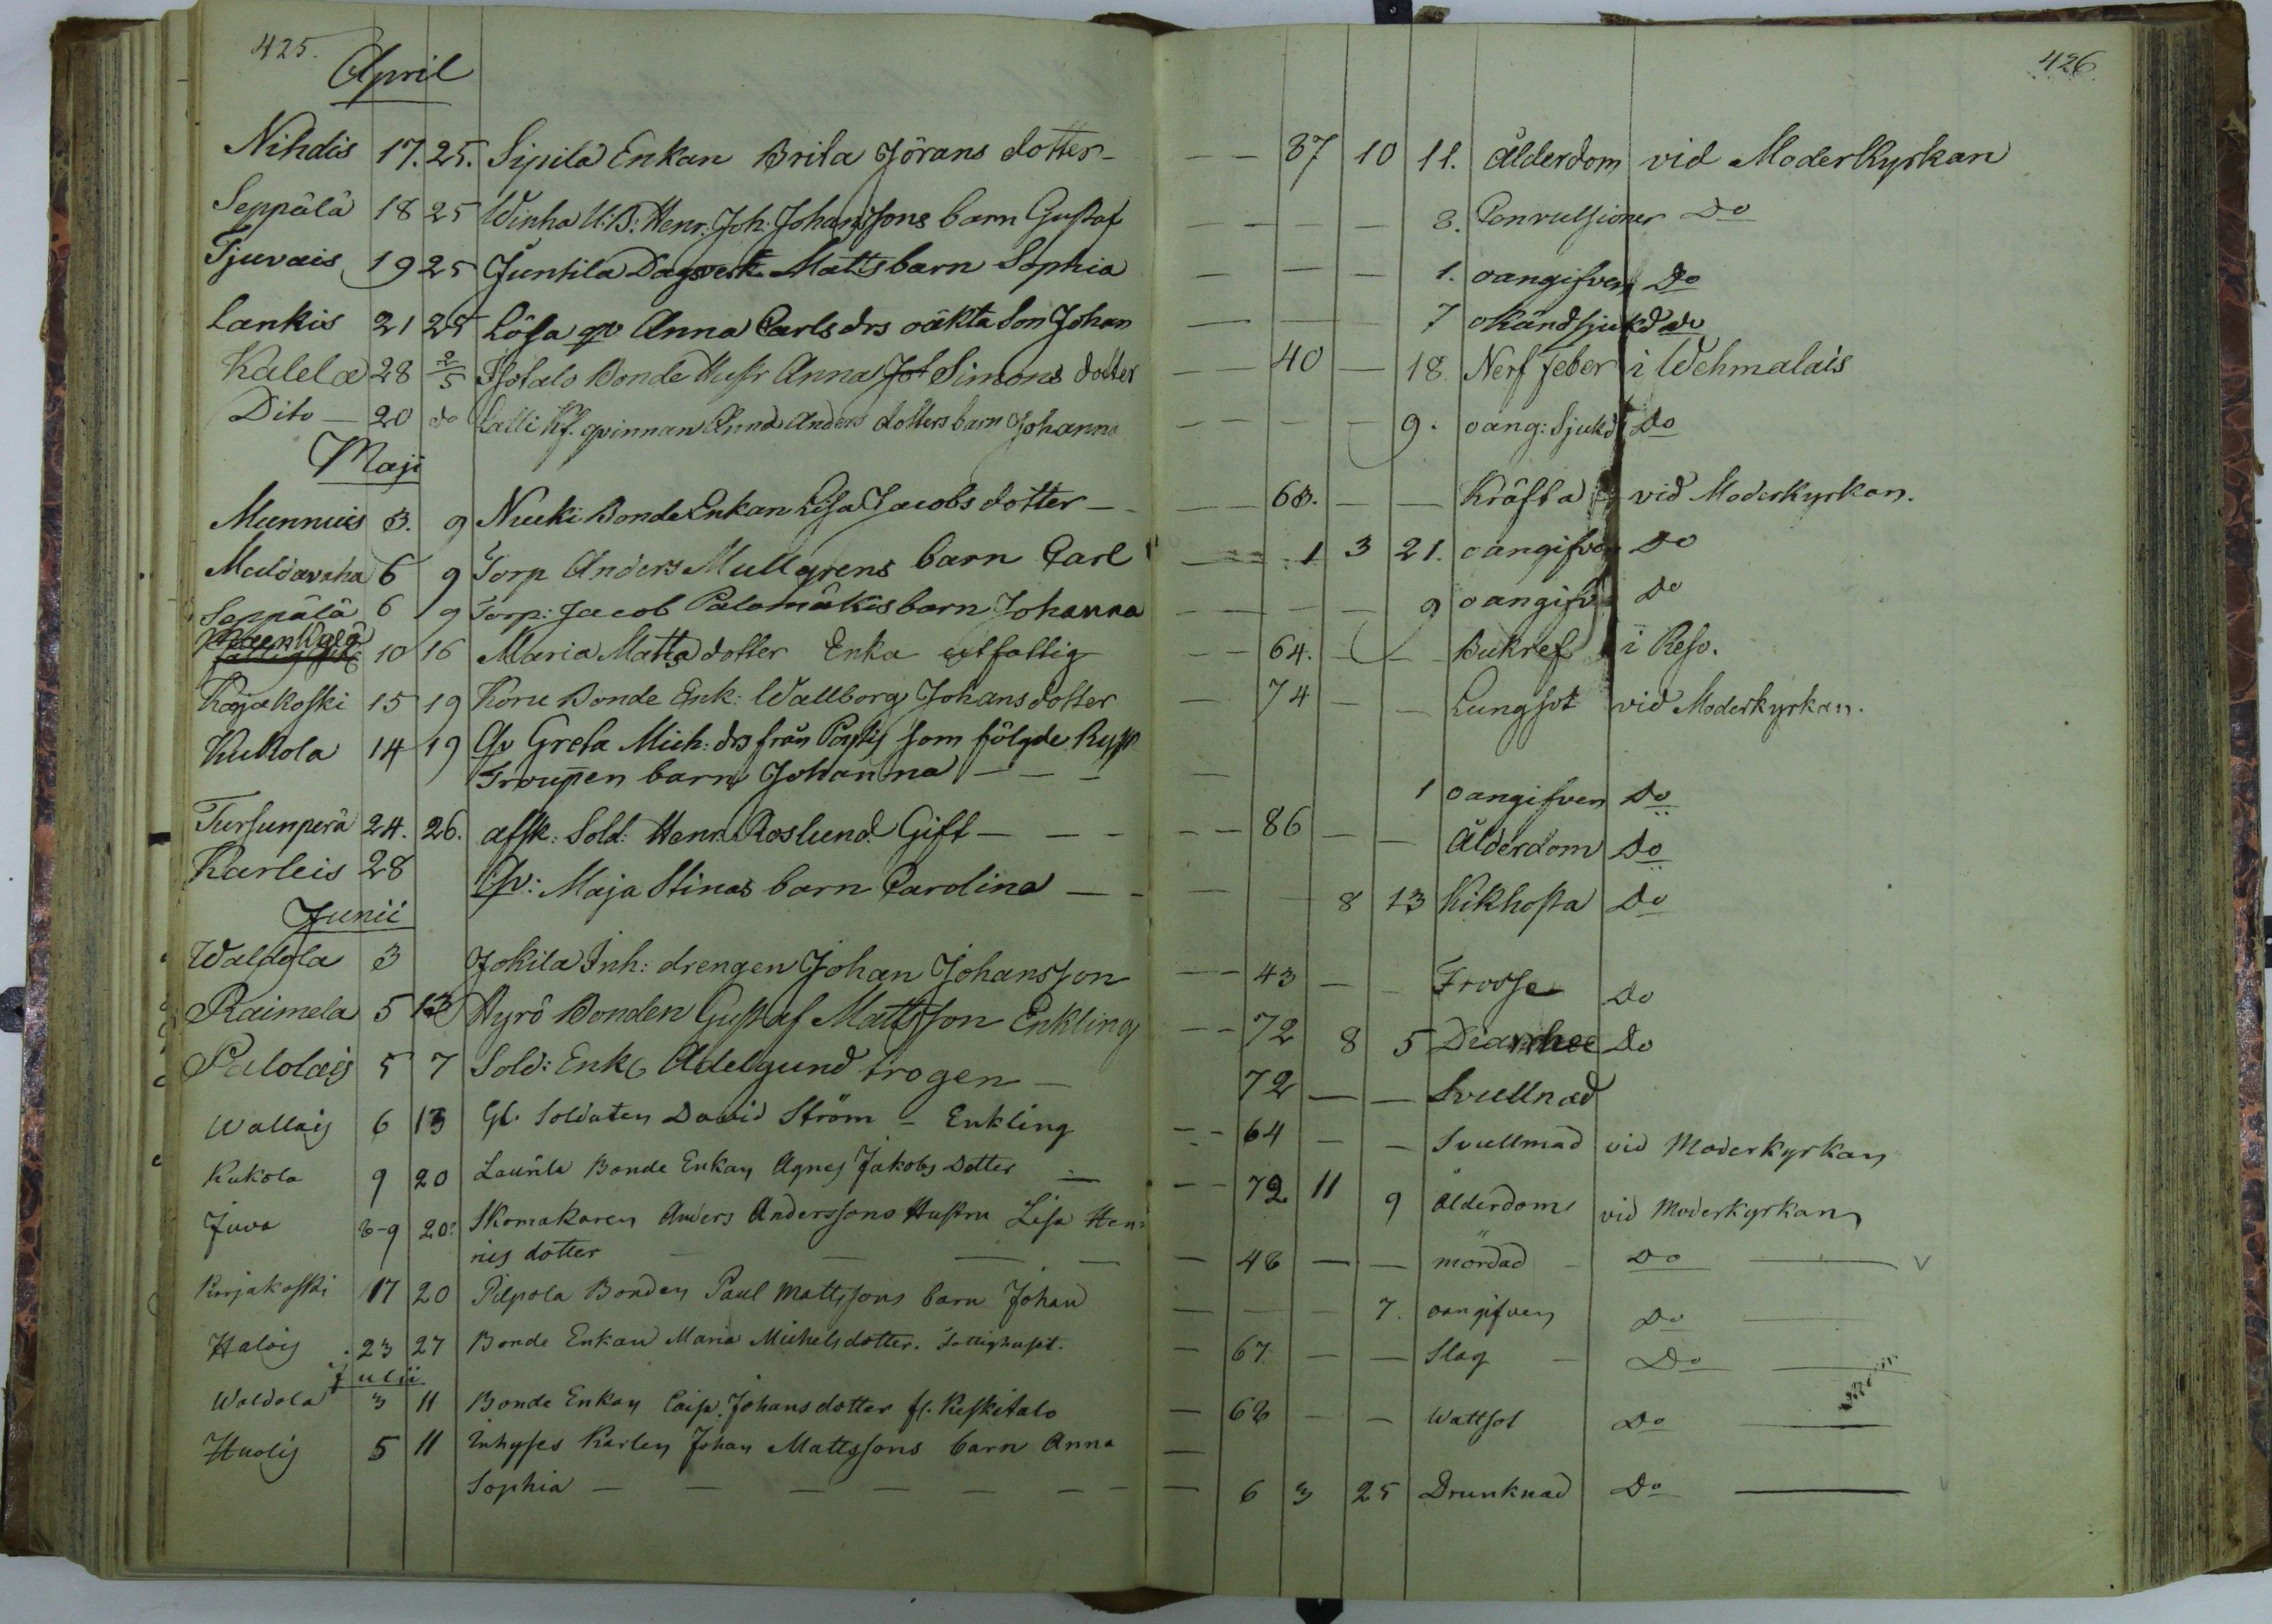 425.
April
426
Nihdis 17. 25. Sipilä Enkan Brita Jörans dotter - — — 87 10 11. ålderdom vid Moderkyrkan
Seppälä 18 25 Winha U:B: Henr: Joh: Johanssons barn Gustaf — — — — 8. Convulsioner Do
Tjuvais 19 25 Juntila Dagsverk. Matts barn Sophia — — — 1. oangifven Do
Lankis 21 25 Lösa qv Anna Carls drs oäkta Son Johan — — — 7 okänd sjukd do
Kalela 28 2/5 Isotalo Bonde Hustr Anna Simons dotter — — 40 — 18. Nerf feber i Wehmalais
Dito — 20 do Lalli Kf. qvinnan Anna Anders dotters barn Johanna — — — — 9. oang: Sjukd Do
Maji
Munnuis 3. 9 Nuki Bonde Enkan Lisa Jacobs dotter — — — 63. — — Kräfta vid Moderkyrkan.
Maldavaha 6 9 Torp Anders Mullgrens barn Carl — — 1 3 21. oangifven Do
Seppälä 6 9 Torp: Jacob Palomäkis barn Johanna — — — — 9 oangifv Do
10 16 Maria Matts dotter Enka utfattig — — 64. — — Bukref i Reso.
Korjakoski 15 19 Koru Bonde Enk: Wallborg Johansdotter — 74 — — Lungsot vid Moderkyrkan.
Kukola 14 19 Qv Greta Mich: drs från Pöytis som följde Rysk
Troupen barn Johanna — — — — 1 oangifven Do
Tursunperä 24. 26. afsk: Sold: Henr. Roslund Gift — — — — — 86 — — Ålderdom Do
Karleis 28 Qv: Maja Stinas barn Carolina — — — — 8 13 Kikhosta Do
Junii
Waldola 3 Jokila Inh: drengen Johan Johansson — — 43 — — Frossa Do
Raimela 5 13 Hyrö Bonden Gustaf Mattsson Enkling — — 72 8 5 Diarrhee Do
Palolais 5 7 Sold: Enk Adelgund trogen — 72 — — Svullnad
Wallais 6 13 Gl. Soldaten David Ström - Enkling — — 64 — — Svullnad vid Moderkyrkan
Kukola 9 20 Laurila Bonde Enkan Agnes Jakobs Dotter — — — 72 11 9 ålderdom vid Moderkyrkan
Juva 8-9 20: Skomakaren Anders Anderssons Hustru Lisa Hen=
ris dotter — — — — — 48 — — mördad - Do — v
Korjakoski 17 20 Pilpola Bonden Paul Mattssons barn Johan — — — 7. oangifven Do —
Halois 23 27 Bonde Enkan Maria Michelsdotter. fattighust. — 67 — — Slag — Do —
Julii
Waldola 3 11 Bonde Enkan Caisa Johansdotter fr. Keskitalo — 68 — — Wattsot Do —
Huolis 5 11 Inhyses Karlen Johan Mattssons barn Anna —
Sophia — — — — — — — — 6 3 25 Drunknad Do —